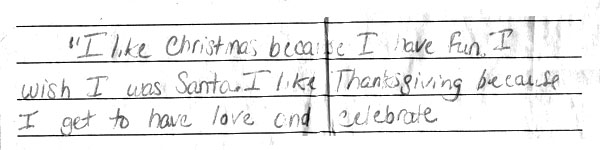 "I like Christmas because I have fun. I
wish I was Santa. I like Thanksgiving because
I get to have love and celebrate